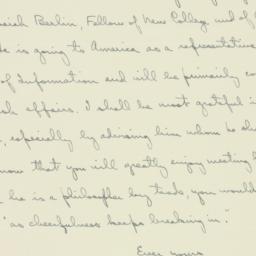 Isaiah Berlin, Fellow of New College and of
is going to America as a representative
of Information and will be primarily con
affairs. I shall be most grateful i
, especially by advising him whom to
know that you will greatly enjoy meeting h
he is a philosopher by trade, you would
"as cheerfulness keeps breaking in."
Ever yours